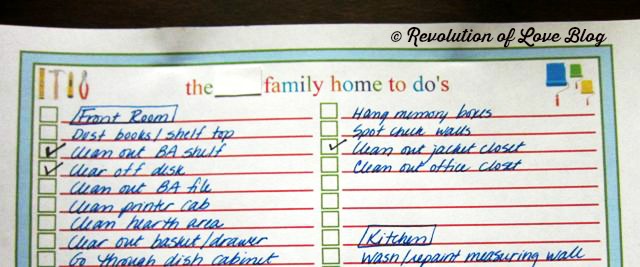 © Revolution of Love Blog
the family home to do's
Front Room
Dust books/shelf top
Clean out BA shelf
Clear off disk
Clean out BA file
Clean printer cab
Clean hearth area
Clear out basket/drawer
Go through dish cabinet
Hang memory boxes
Spot check walls
Clean out jacket closet
Clean out office closet
Kitchen
Wash/repaint measuring wall